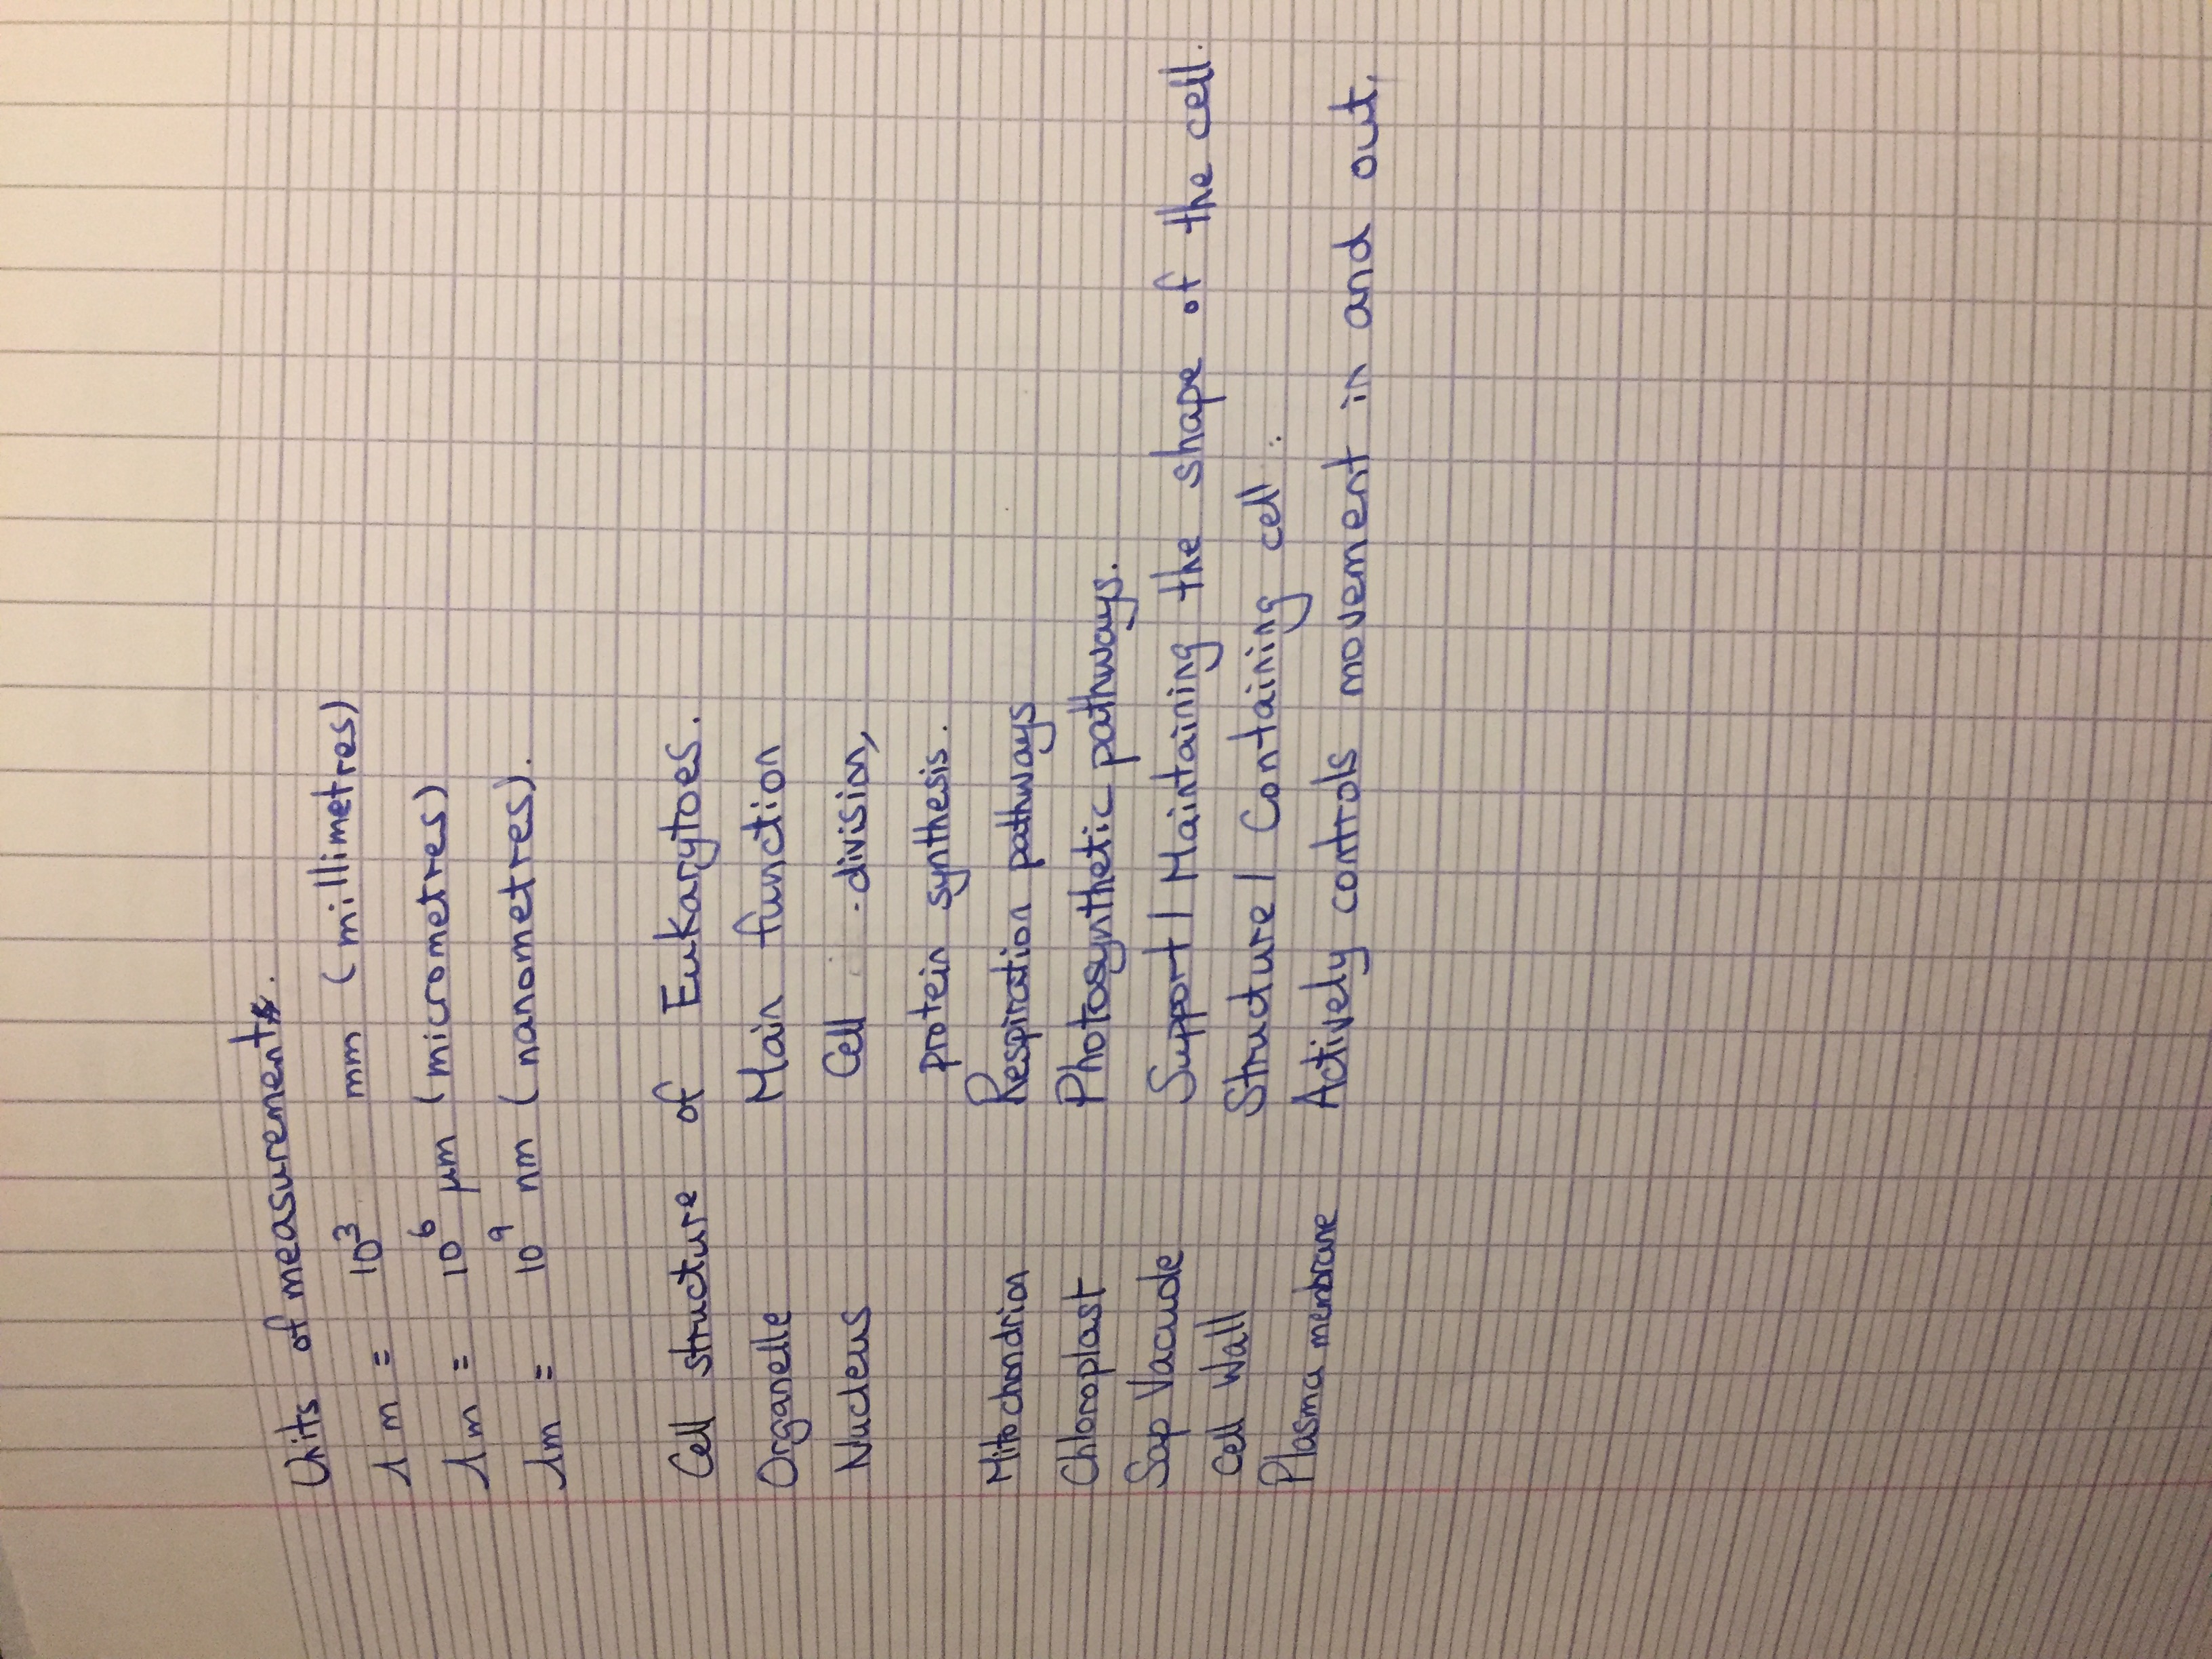 Units of measurement.
1 m = 10³ mm (millimetres)
1m = 10⁶ μm (micrometres)
1m = 10⁹ nm (nanometres).
Cell structure of Eukarytoes.
Organelle Main function
Nucleus Cell division,
protein synthesis.
Mitochondrion Respiration pathways
Chloroplast Photosynthetic pathways.
Sap Vacuole Support / Maintaining the shape of the cell.
Cell Wall Structure / Containing cell.
Plasma membrane Actively controls movement in and out.